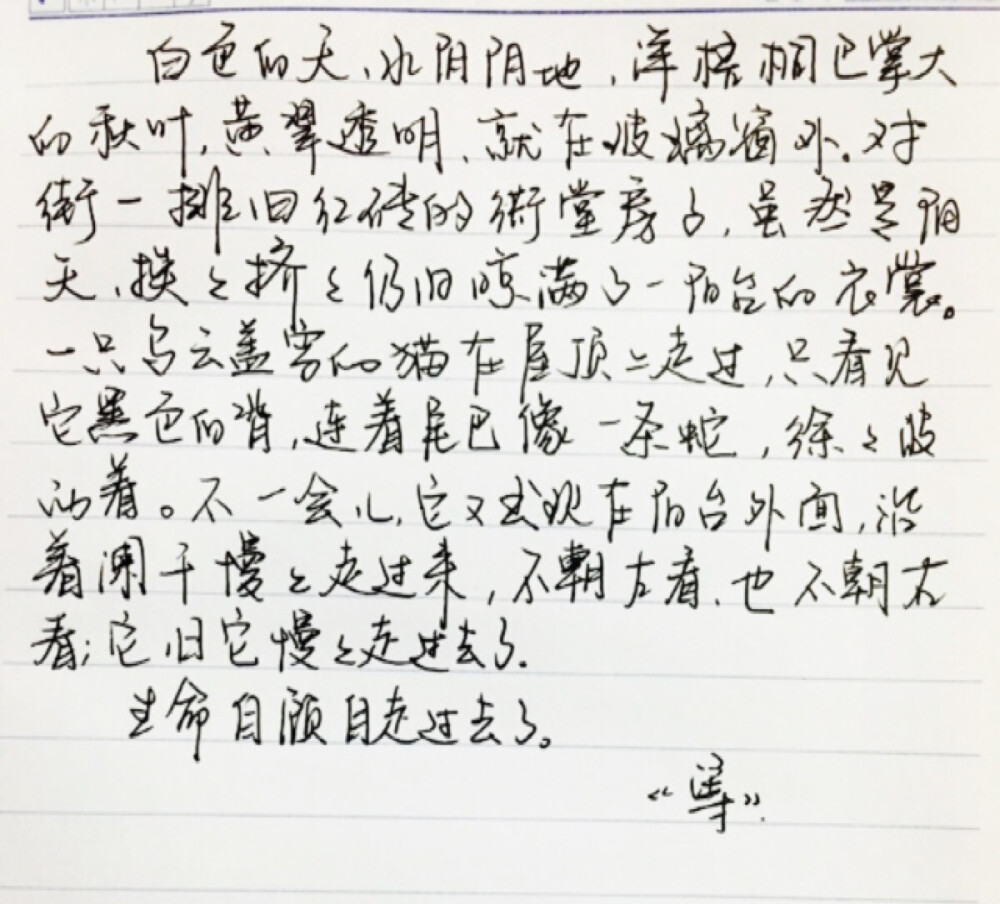 白色的天,水阴阴地,洋梧桐巴掌大
的秋叶,黄翠透明,就在玻璃窗外。对
街一排旧红砖的衖堂房子,虽然是阴
天,挨々挤々仍旧晾满了一阳台的衣裳。
一只乌云盖雪的猫在屋顶上走过,只看见
它黑色的背,连着尾巴像一条蛇,徐々波
动着。不一会儿,它又出现在阳台外面,沿
着阑干慢々走过来,不朝左看,也不朝右
看;它归它慢々走过去了。
生命自顾自走过去了。
《等》